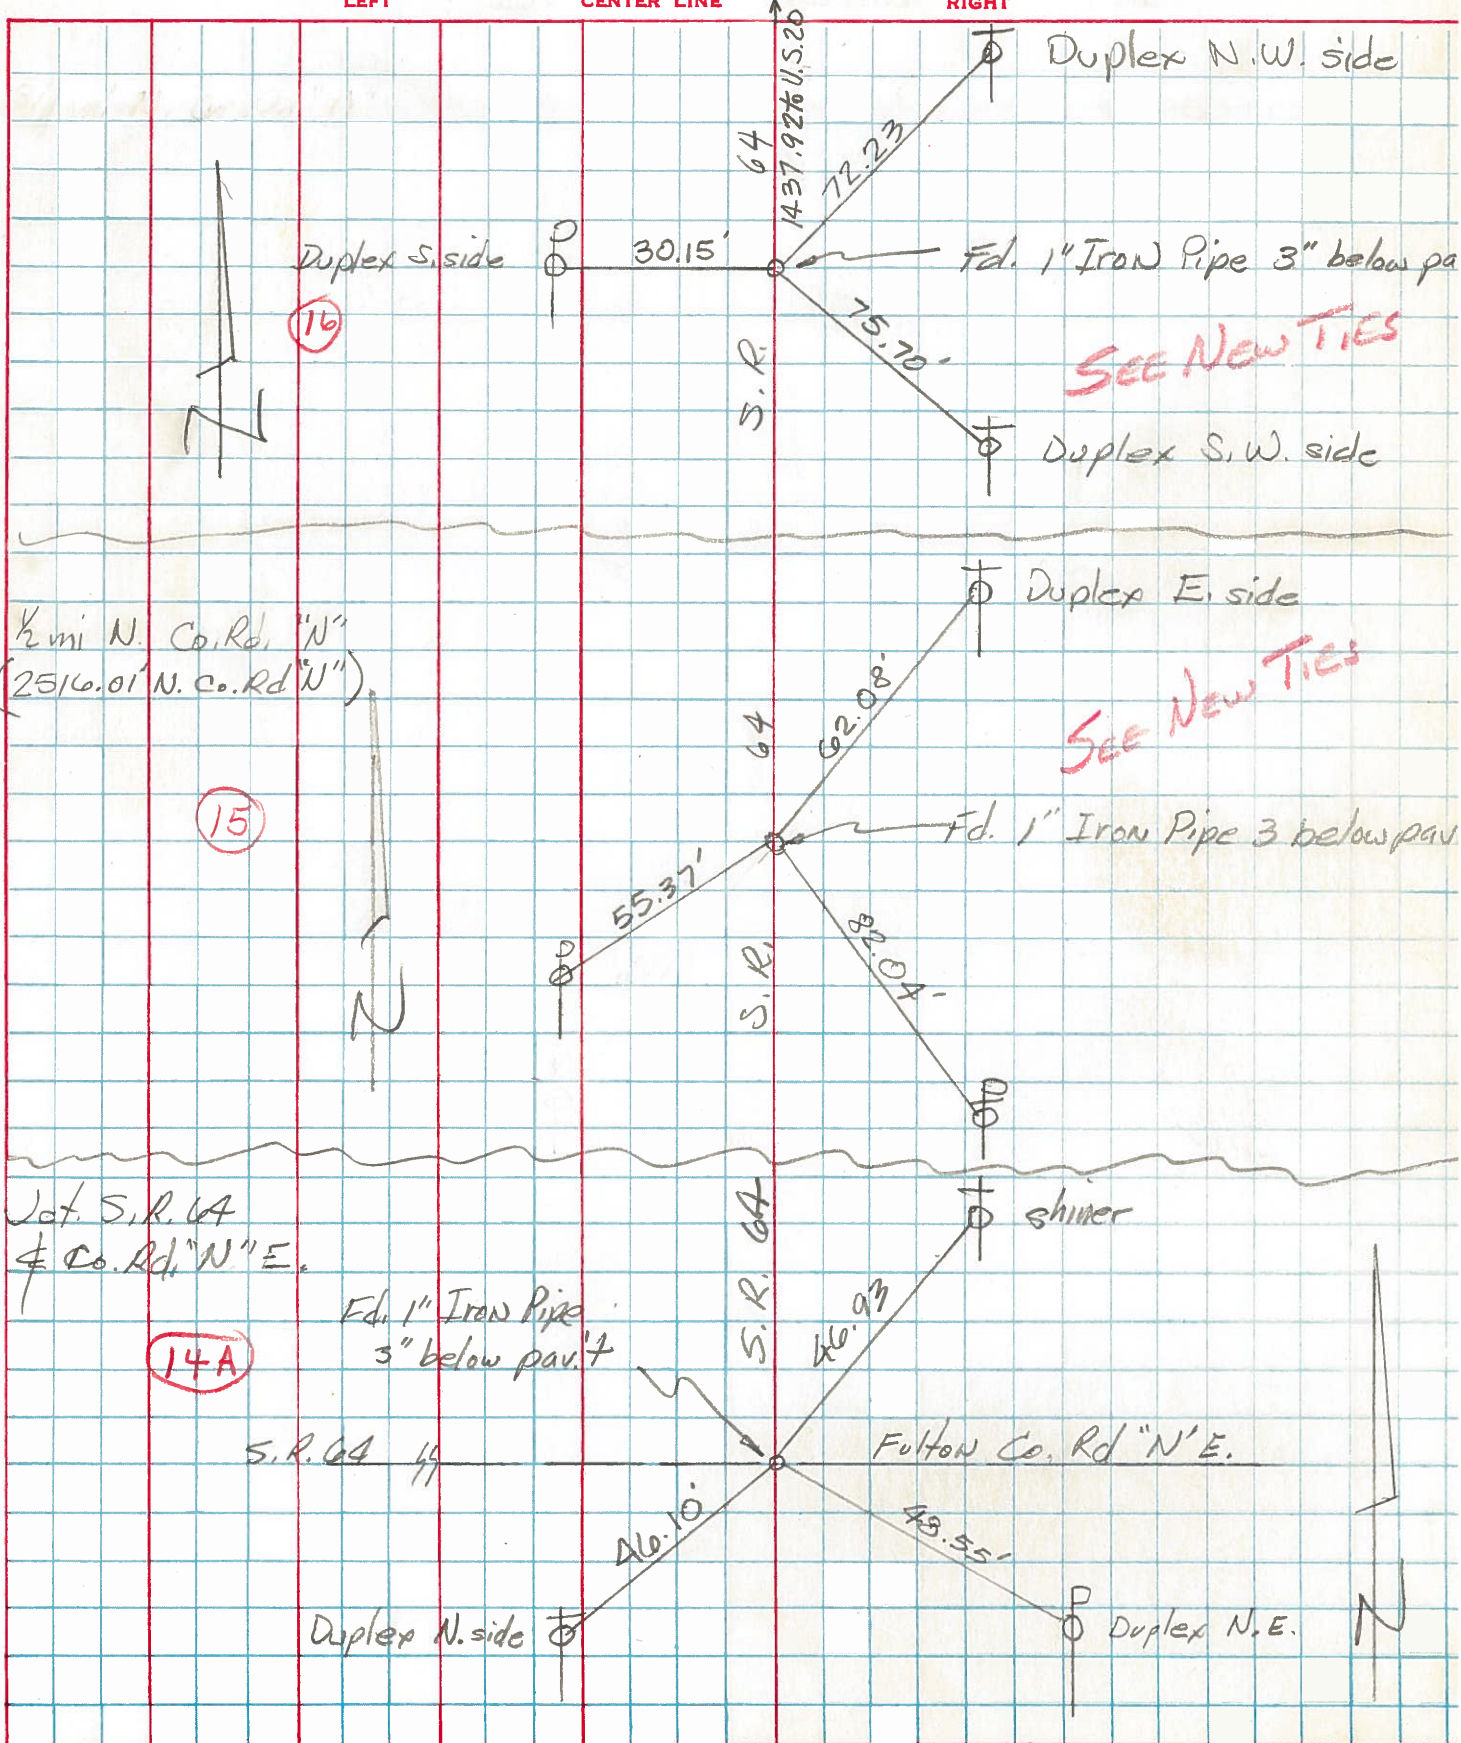 LEFT
CENTER LINE
RIGHT
1437.92 to U.S.20
64
S.R.
Duplex N.W. side
72.23
Duplex S. side
30.15'
Fd. 1" Iron Pipe 3" below pa
16
75.70'
SEE NEW TIES
N
Duplex S.W. side
Duplex E. side
1/2 mi N. Co. Rd. "N"
(2516.01' N. Co. Rd "N")
62.08'
SEE NEW TIES
64
S.R.
15
Fd. 1" Iron Pipe 3 below pav
55.37'
82.04'
N
Jct. S.R. 64
& Co. Rd. "N" E.
shiner
S.R. 64
Fd. 1" Iron Pipe
3" below pav.'t
46.93
14A
S.R. 64
Fulton Co. Rd "N" E.
46.10'
48.55'
Duplex N. side
Duplex N.E.
N